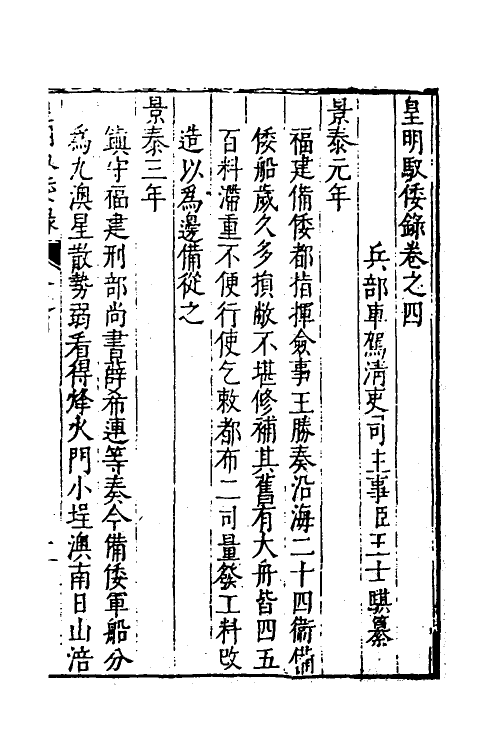 皇明馭倭錄卷之四
兵部車駕清吏司主事臣王士騏纂
景泰元年
福建備倭都指揮僉事王勝奏沿海二十四衞備
倭船歲久多損敝不堪修補其舊有大舟皆四五
百料滯重不便行使乞敕都布二司量發工料改
造以爲邊備從之
景泰三年
鎮守福建刑部尚書薛希璉等奏今備倭軍船分
爲九澳星散勢弱看得烽火門小埕澳南日山浯